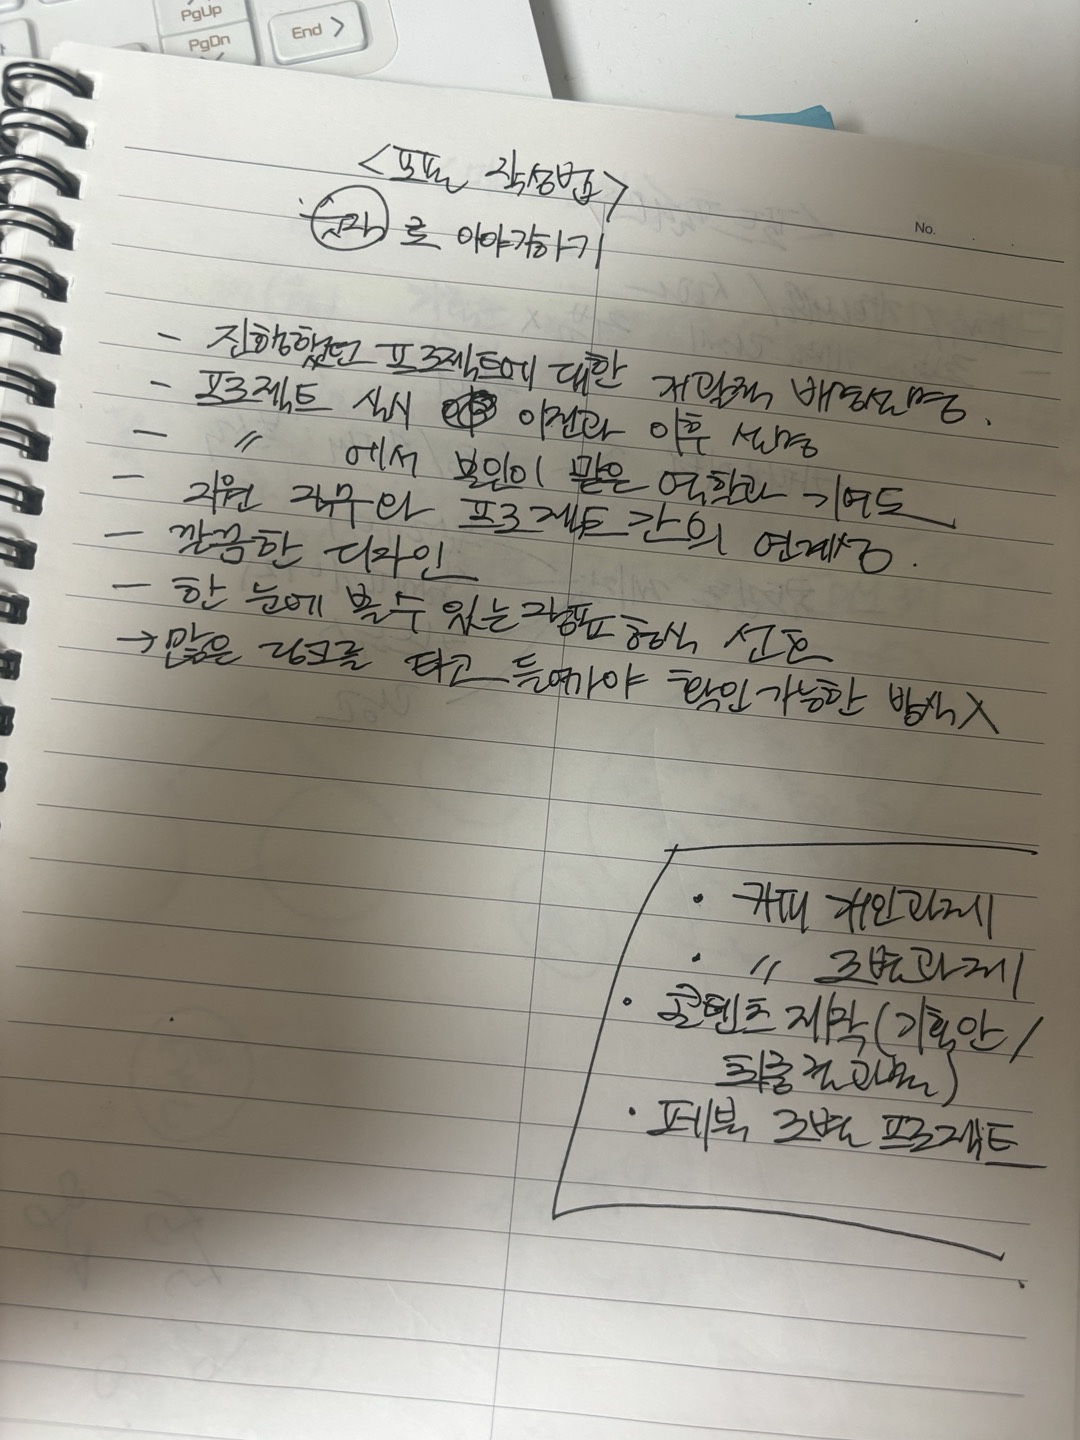 PgUp
PgDn
End >
No.
<포폴 작성법>
숫자로 이야기하기
- 진행했던 프로젝트에 대한 개괄적 배경설명.
- 프로젝트 실시 이전과 이후 설명
- 〃 에서 본인이 맡은 역할과 기여도
- 지원 직무와 프로젝트 간의 연계성.
- 깔끔한 디자인
- 한 눈에 볼 수 있는 장표 형식 선호
→ 많은 링크를 타고 들어가야 확인 가능한 방식 X
• 카피 개인과제
• 〃 조별과제
• 콘텐츠 제작 (기획안 /
최종 결과물)
• 페북 조별 프로젝트